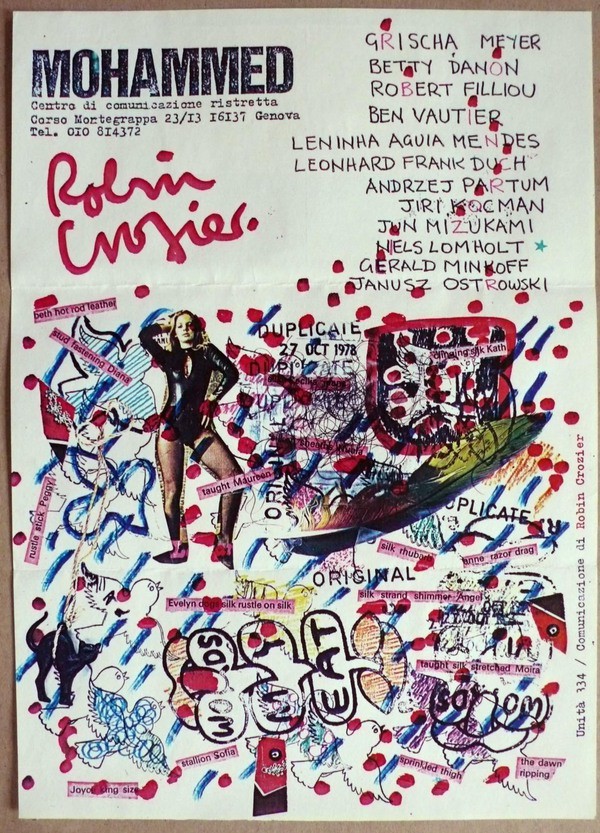 MOHAMMED
Centro di comunicazione ristretta
Corso Montegrappa 23/I3 I6I37 Genova
Tel. OIO 8I4372
Robin
Crozier.
GRISCHA MEYER
BETTY DANON
ROBERT FILLIOU
BEN VAUTIER
LENINHA AGUIA MENDES
LEONHARD FRANK DUCH
ANDRZEJ PARTUM
JIRI KOCMAN
JUN MIZUKAMI
NIELS LOMHOLT
GERALD MINKOFF
JANUSZ OSTROWSKI
beth hot rod leather
stud fastening Diana
DUPLICATE
27 OCT 1978
DUPLICATE
clinging silk Kath
taught Maureen
rustle stick Peggy
ORIGINAL
DUPLICATE
silk rhubarb
anne razor drag
ORIGINAL
Evelyn dogs silk rustle on silk
silk strand shimmer Angel
WORDS
EAT
taught silk stretched Moira
stallion Sofia
sprinkled thigh
the dawn
ripping
Joyce king size
Unità 334 / Comunicazione di Robin Crozier